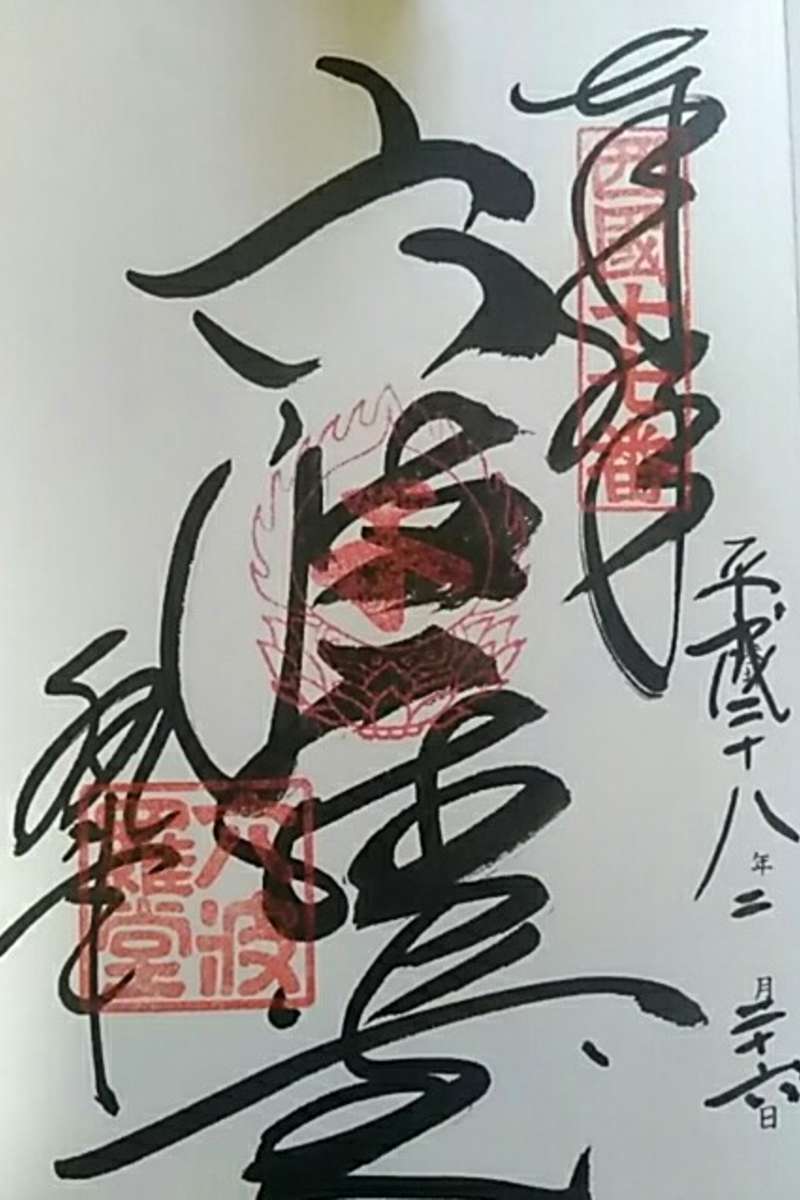 奉拝
西國十七番
平成二十八年二月二十六日
六波羅堂
六波
羅堂